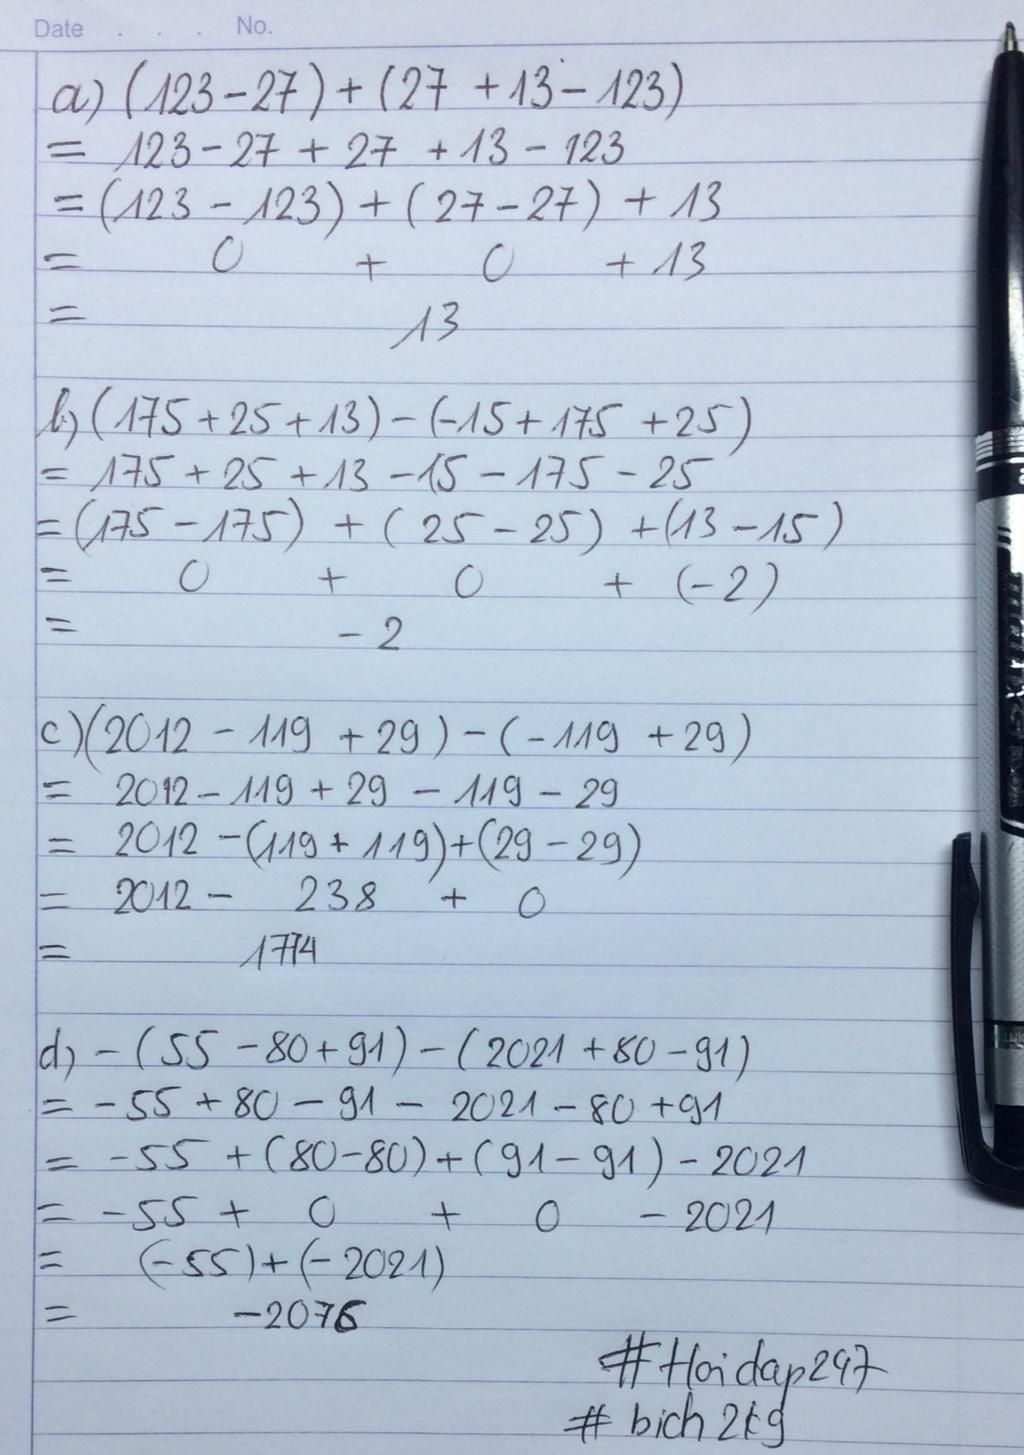 Date . . . No.
a) (123 - 27) + (27 + 13 - 123)
= 123 - 27 + 27 + 13 - 123
= (123 - 123) + (27 - 27) + 13
= 0 + 0 + 13
= 13
b) (175 + 25 + 13) - (-15 + 175 + 25)
= 175 + 25 + 13 - 15 - 175 - 25
= (175 - 175) + (25 - 25) + (13 - 15)
= 0 + 0 + (-2)
= -2
c) (2012 - 119 + 29) - (-119 + 29)
= 2012 - 119 + 29 - 119 - 29
= 2012 - (119 + 119) + (29 - 29)
= 2012 - 238 + 0
= 1774
d) - (55 - 80 + 91) - (2021 + 80 - 91)
= -55 + 80 - 91 - 2021 - 80 + 91
= -55 + (80 - 80) + (91 - 91) - 2021
= -55 + 0 + 0 - 2021
= (-55) + (-2021)
= -2076
#Hoidap247
# bich2kg